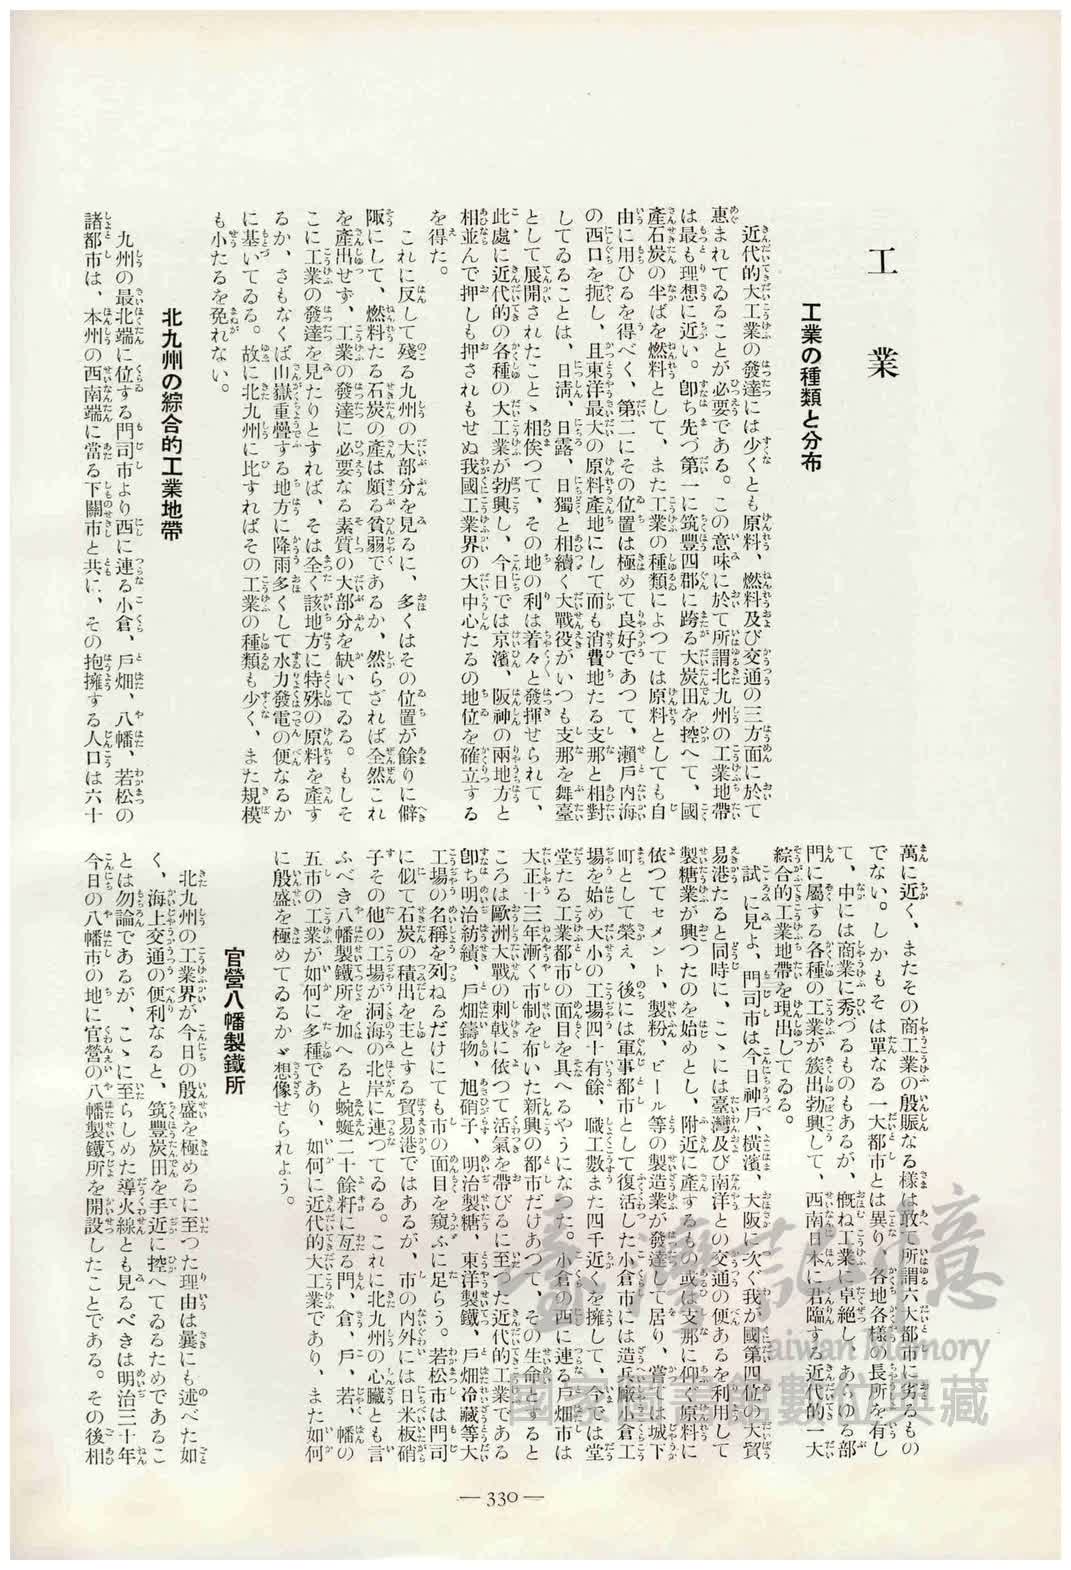 工業
工業の種類と分布
近代的大工業の發達には少くとも原料、燃料及び交通の三方面に於て
惠まれてゐることが必要である。この意味に於て所謂北九州の工業地帶
は最も理想に近い。卽ち先づ第一に筑豐四郡に跨る大炭田を控へて、國
產石炭の半ばを燃料として、また工業の種類によつては原料としても自
由に用ひるを得べく、第二にその位置は極めて良好であつて、瀨戶內海
の西口を扼し、且東洋最大の原料產地にして而も消費地たる支那と相對
してゐることは、日淸、日露、日獨と相續く大戰役がいつも支那を舞臺
として展開されたことゝ相俟つて、その地の利は着々と發揮せられて、
此處に近代的の各種の大工業が勃興し、今日では京濱、阪神の兩地方と
相並んで押しも押されもせぬ我國工業界の大中心たるの地位を確立する
を得た。
これに反して殘る九州の大部分を見るに、多くはその位置が餘りに僻
陬にして、燃料たる石炭の產は頗る貧弱であるか、然らざれば全然これ
を產出せず、工業の發達に必要なる素質の大部分を缺いてゐる。もしそ
こに工業の發達を見たりとすれば、そは全く該地方に特殊の原料を產す
るか、さもなくば山嶽重疊する地方に降雨多くして水力發電の便なるか
に基いてゐる。故に北九州に比すればその工業の種類も少く、また規模
も小たるを免れない。
北九州の綜合的工業地帶
九州の最北端に位する門司市より西に連る小倉、戶畑、八幡、若松の
諸都市は、本州の西南端に當る下關市と共に、その抱擁する人口は六十
萬に近く、またその商工業の殷賑なる樣は敢て所謂六大都市に劣るもの
でない。しかもそは單なる一大都市とは異り、各地各樣の長所を有し
て、中には商業に秀づるものもあるが、槪ね工業に卓絕し、あらゆる部
門に屬する各種の工業が簇出勃興して、西南日本に君臨する近代的一大
綜合的工業地帶を現出してゐる。
試に見よ、門司市は今日神戶、橫濱、大阪に次ぐ我が國第四位の大貿
易港たると同時に、こゝには臺灣及び南洋との交通の便あるを利用して
製糖業が興つたのを始めとし、附近に產するもの或は支那に仰ぐ原料に
依つてセメント、製粉、ビール等の製造業が發達して居り、嘗ては城下
町として榮え、後には軍事都市として復活した小倉市には造兵廠小倉工
場を始め大小の工場四十有餘、職工數また四千近くを擁して、今では堂
堂たる工業都市の面目を具へるやうになつた。小倉の西に連る戶畑市は
大正十三年漸く市制を布いた新興の都市だけあつて、その生命とすると
ころは歐洲大戰の刺戟に依つて活氣を帶びるに至つた近代的工業である
卽ち明治紡績、戶畑鑄物、旭硝子、明治製糖、東洋製鐵、戶畑冷藏等大
工場の名稱を列ねるだけにても市の面目を窺ふに足らう。若松市は門司
に似て石炭の積出を主とする貿易港ではあるが、市の內外には日米板硝
子その他の工場が洞海の北岸に連つてゐる。これに北九州の心臟とも言
ふべき八幡製鐵所を加へると蜿蜒二十餘粁に亙る門、倉、戶、若、幡の
五市の工業が如何に多種であり、如何に近代的大工業であり、また如何
に殷盛を極めてゐるかゞ想像せられよう。
官營八幡製鐵所
北九州の工業界が今日の殷盛を極めるに至つた理由は曩にも述べた如
く、海上交通の便利なると、筑豐炭田を手近に控へてゐるためであるこ
とは勿論であるが、こゝに至らしめた導火線とも見るべきは明治三十年
今日の八幡市の地に官營の八幡製鐵所を開設したことである。その後相
— 330 —
臺灣記憶
Taiwan Memory
國家圖書館數位典藏